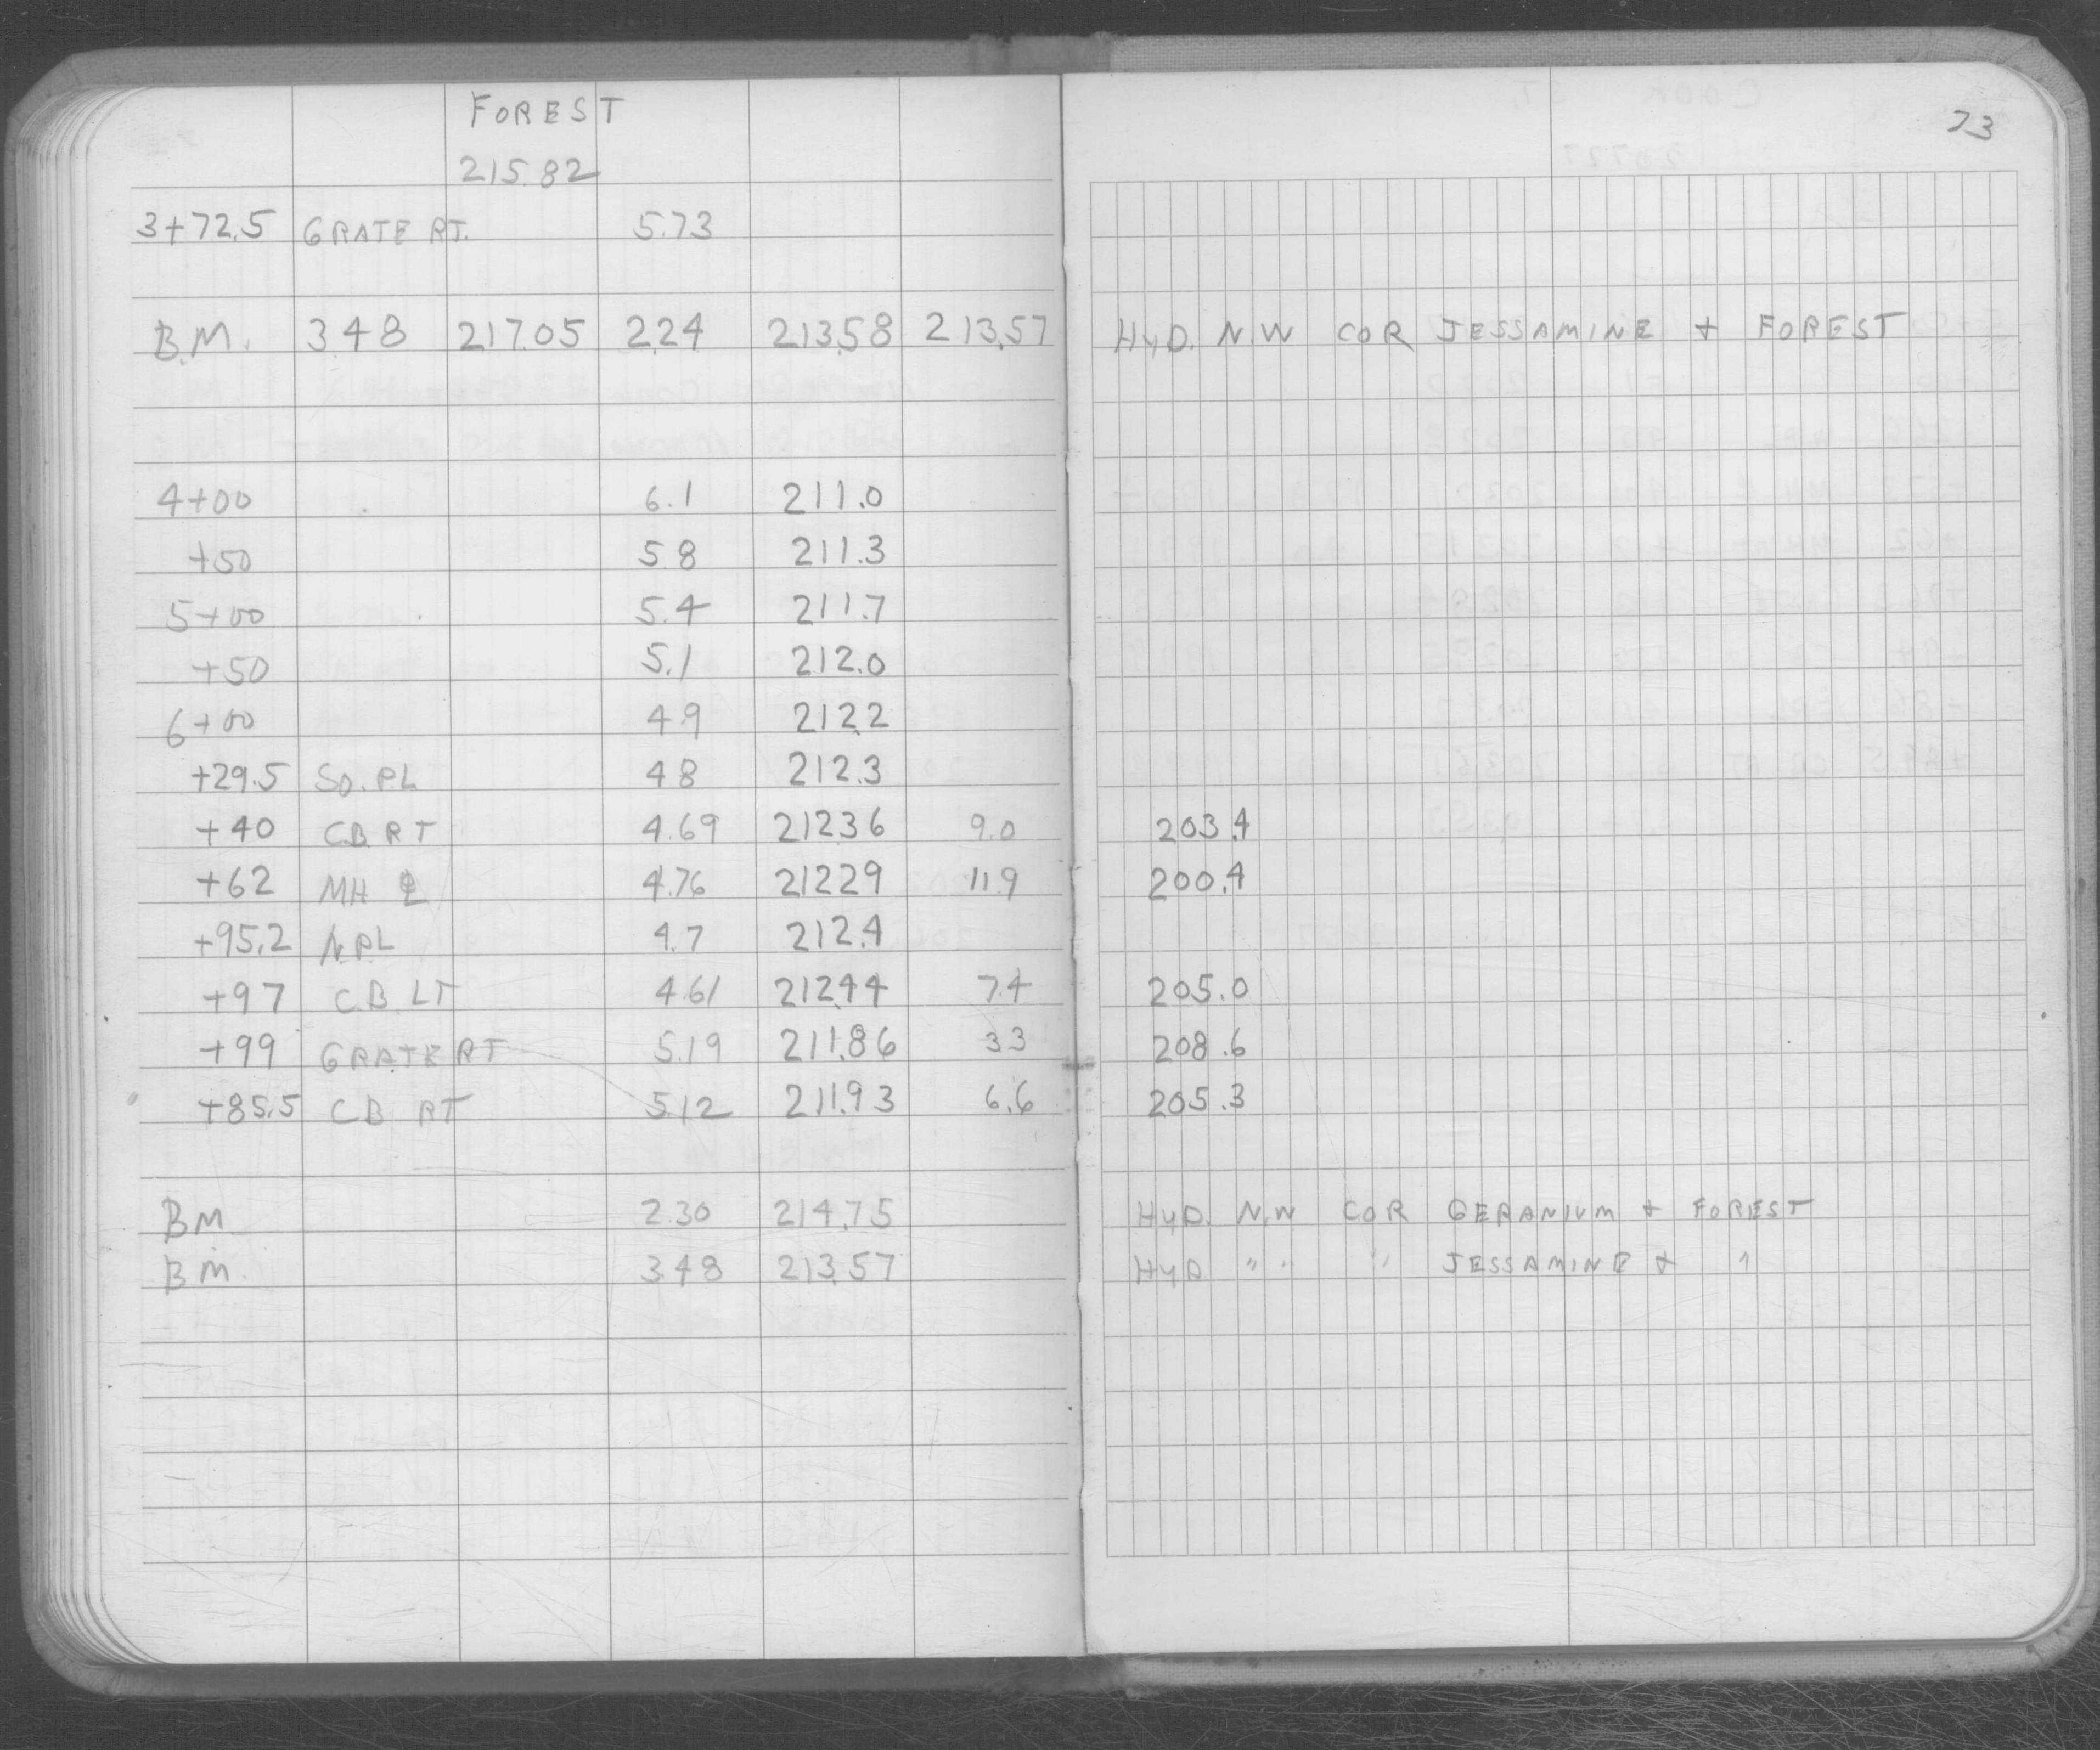 FOREST
73
215.82
3+72.5 GRATE RT. 5.73
B.M. 3.48 217.05 2.24 213.58 213.57 HYD. N.W COR JESSAMINE + FOREST
4+00 6.1 211.0
+50 5.8 211.3
5+00 5.4 211.7
+50 5.1 212.0
6+00 4.9 212.2
+29.5 SO. PL 4.8 212.3
+40 C.B. RT 4.69 212.36 9.0 203.4
+62 MH ℄ 4.76 212.29 11.9 200.4
+95.2 N PL 4.7 212.4
+97 C.B LT 4.61 212.44 7.4 205.0
+99 GRATE RT 5.19 211.86 3.3 208.6
+85.5 CB RT 5.12 211.93 6.6 205.3
BM 2.30 214.75 HYD. N.W COR GERANIUM + FOREST
BM. 3.48 213.57 HYD " " " JESSAMINE + "